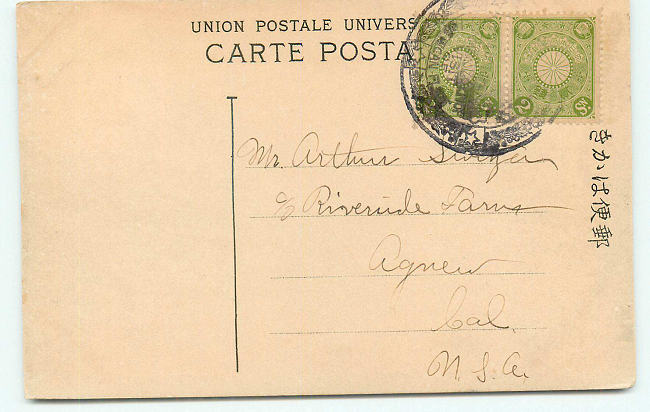 UNION POSTALE UNIVERS
CARTE POSTA
Mr. Arthur
c/o Riverside Farms
Agnew
Cal.
U.S.A.
きかは便郵
2 Sn